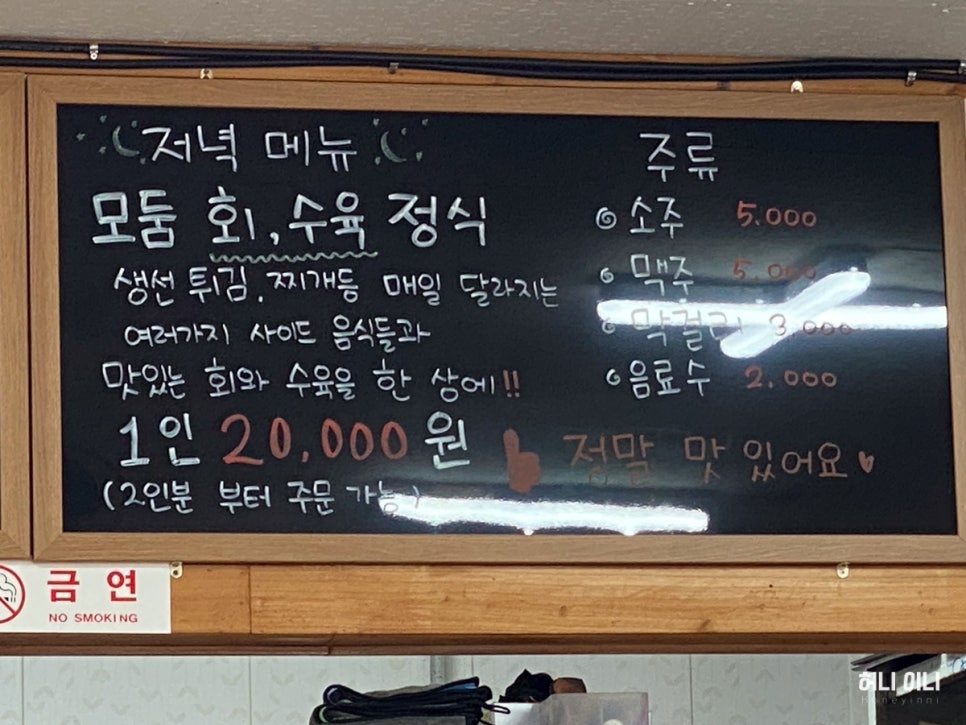 저녁 메뉴
모둠 회, 수육 정식
생선 튀김, 찌개등 매일 달라지는
여러가지 사이드 음식들과
맛있는 회와 수육을 한 상에!!
1인 20,000원
(2인분 부터 주문 가능)
주류
소주 5.000
맥주 5.000
막걸리 3.000
음료수 2.000
정말 맛있어요
금연
NO SMOKING
허니이니
Honeyinni